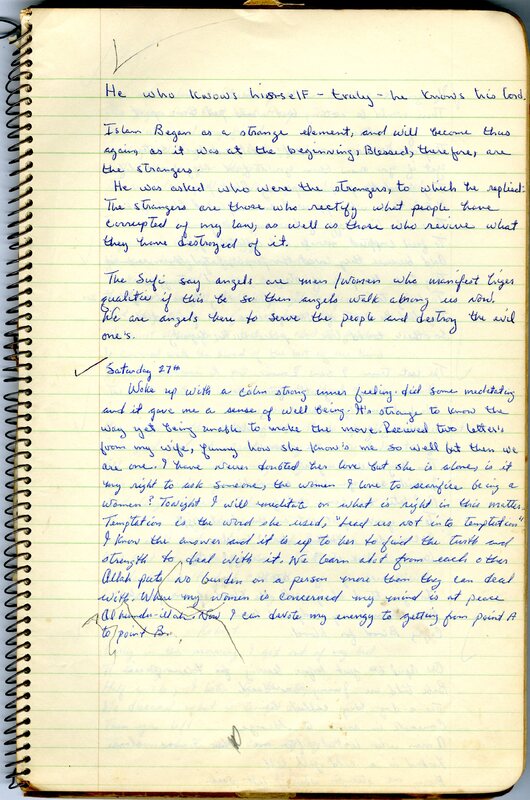 He who knows hisself - truly - he knows his lord.
Islam Began as a strange element, and will become thus
again, as it was at the beginning, Blessed, therefore, are
the strangers.
He was asked who were the strangers, to which he replied:
The strangers are those who rectify what people have
corrupted of my law, as well as those who revive what
they have destroyed of it.
The Sufi say angels are men/women who manifest higer
qualities if this be so then angels walk among us now.
We are angels here to serve the people and destroy the evil
one's.
Saturday 27th
Woke up with a calm strong inner feeling. did some meditating
and it gave me a sense of well being. It's strange to know the
way yet being unable to make the move. Recieved two letter's
from my wife, funny how she know's me so well but then we
are one. I have never doubted her love but she is alone, is it
my right to ask someone, the women I love to sacrifice being a
women? Tonight I will meditate on what is right in this matter.
Temptation is the word she used, "Lead us not into temptation"
I know the answer and it is up to her to find the truth and
strength to deal with it. We learn alot from each other
Allah puts no burden on a person more than they can deal
with. Where my women is concerned my mind is at peace
Now I can devote my energy to getting from point A
to point B.